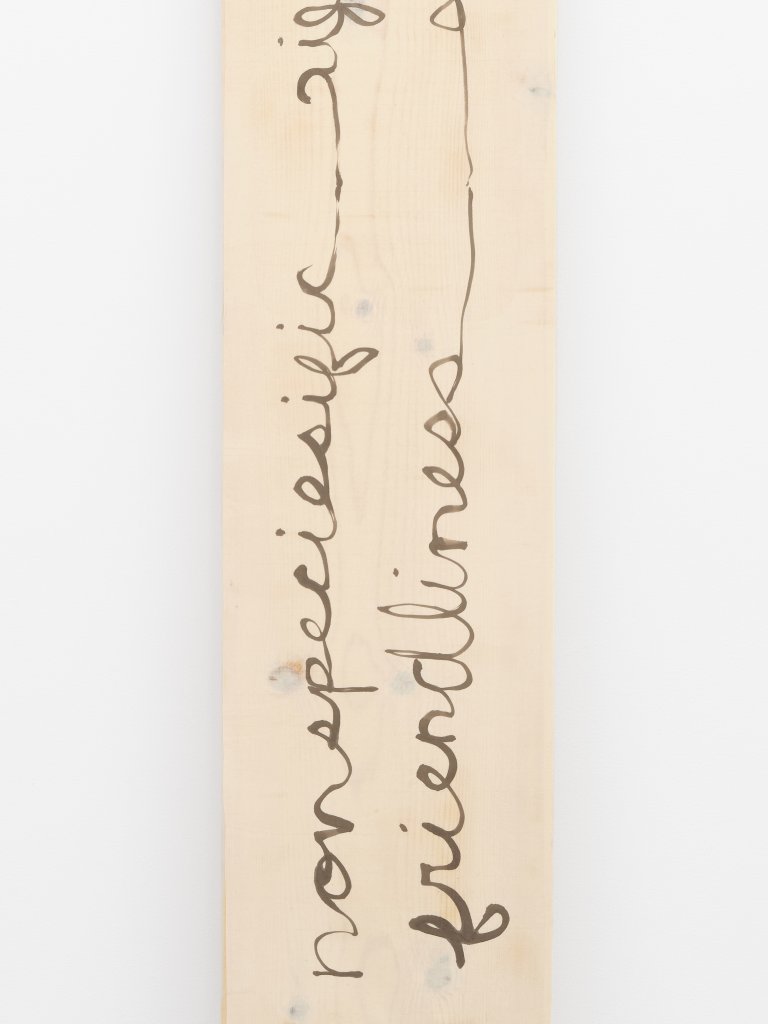 nonspeciesific
friendliness